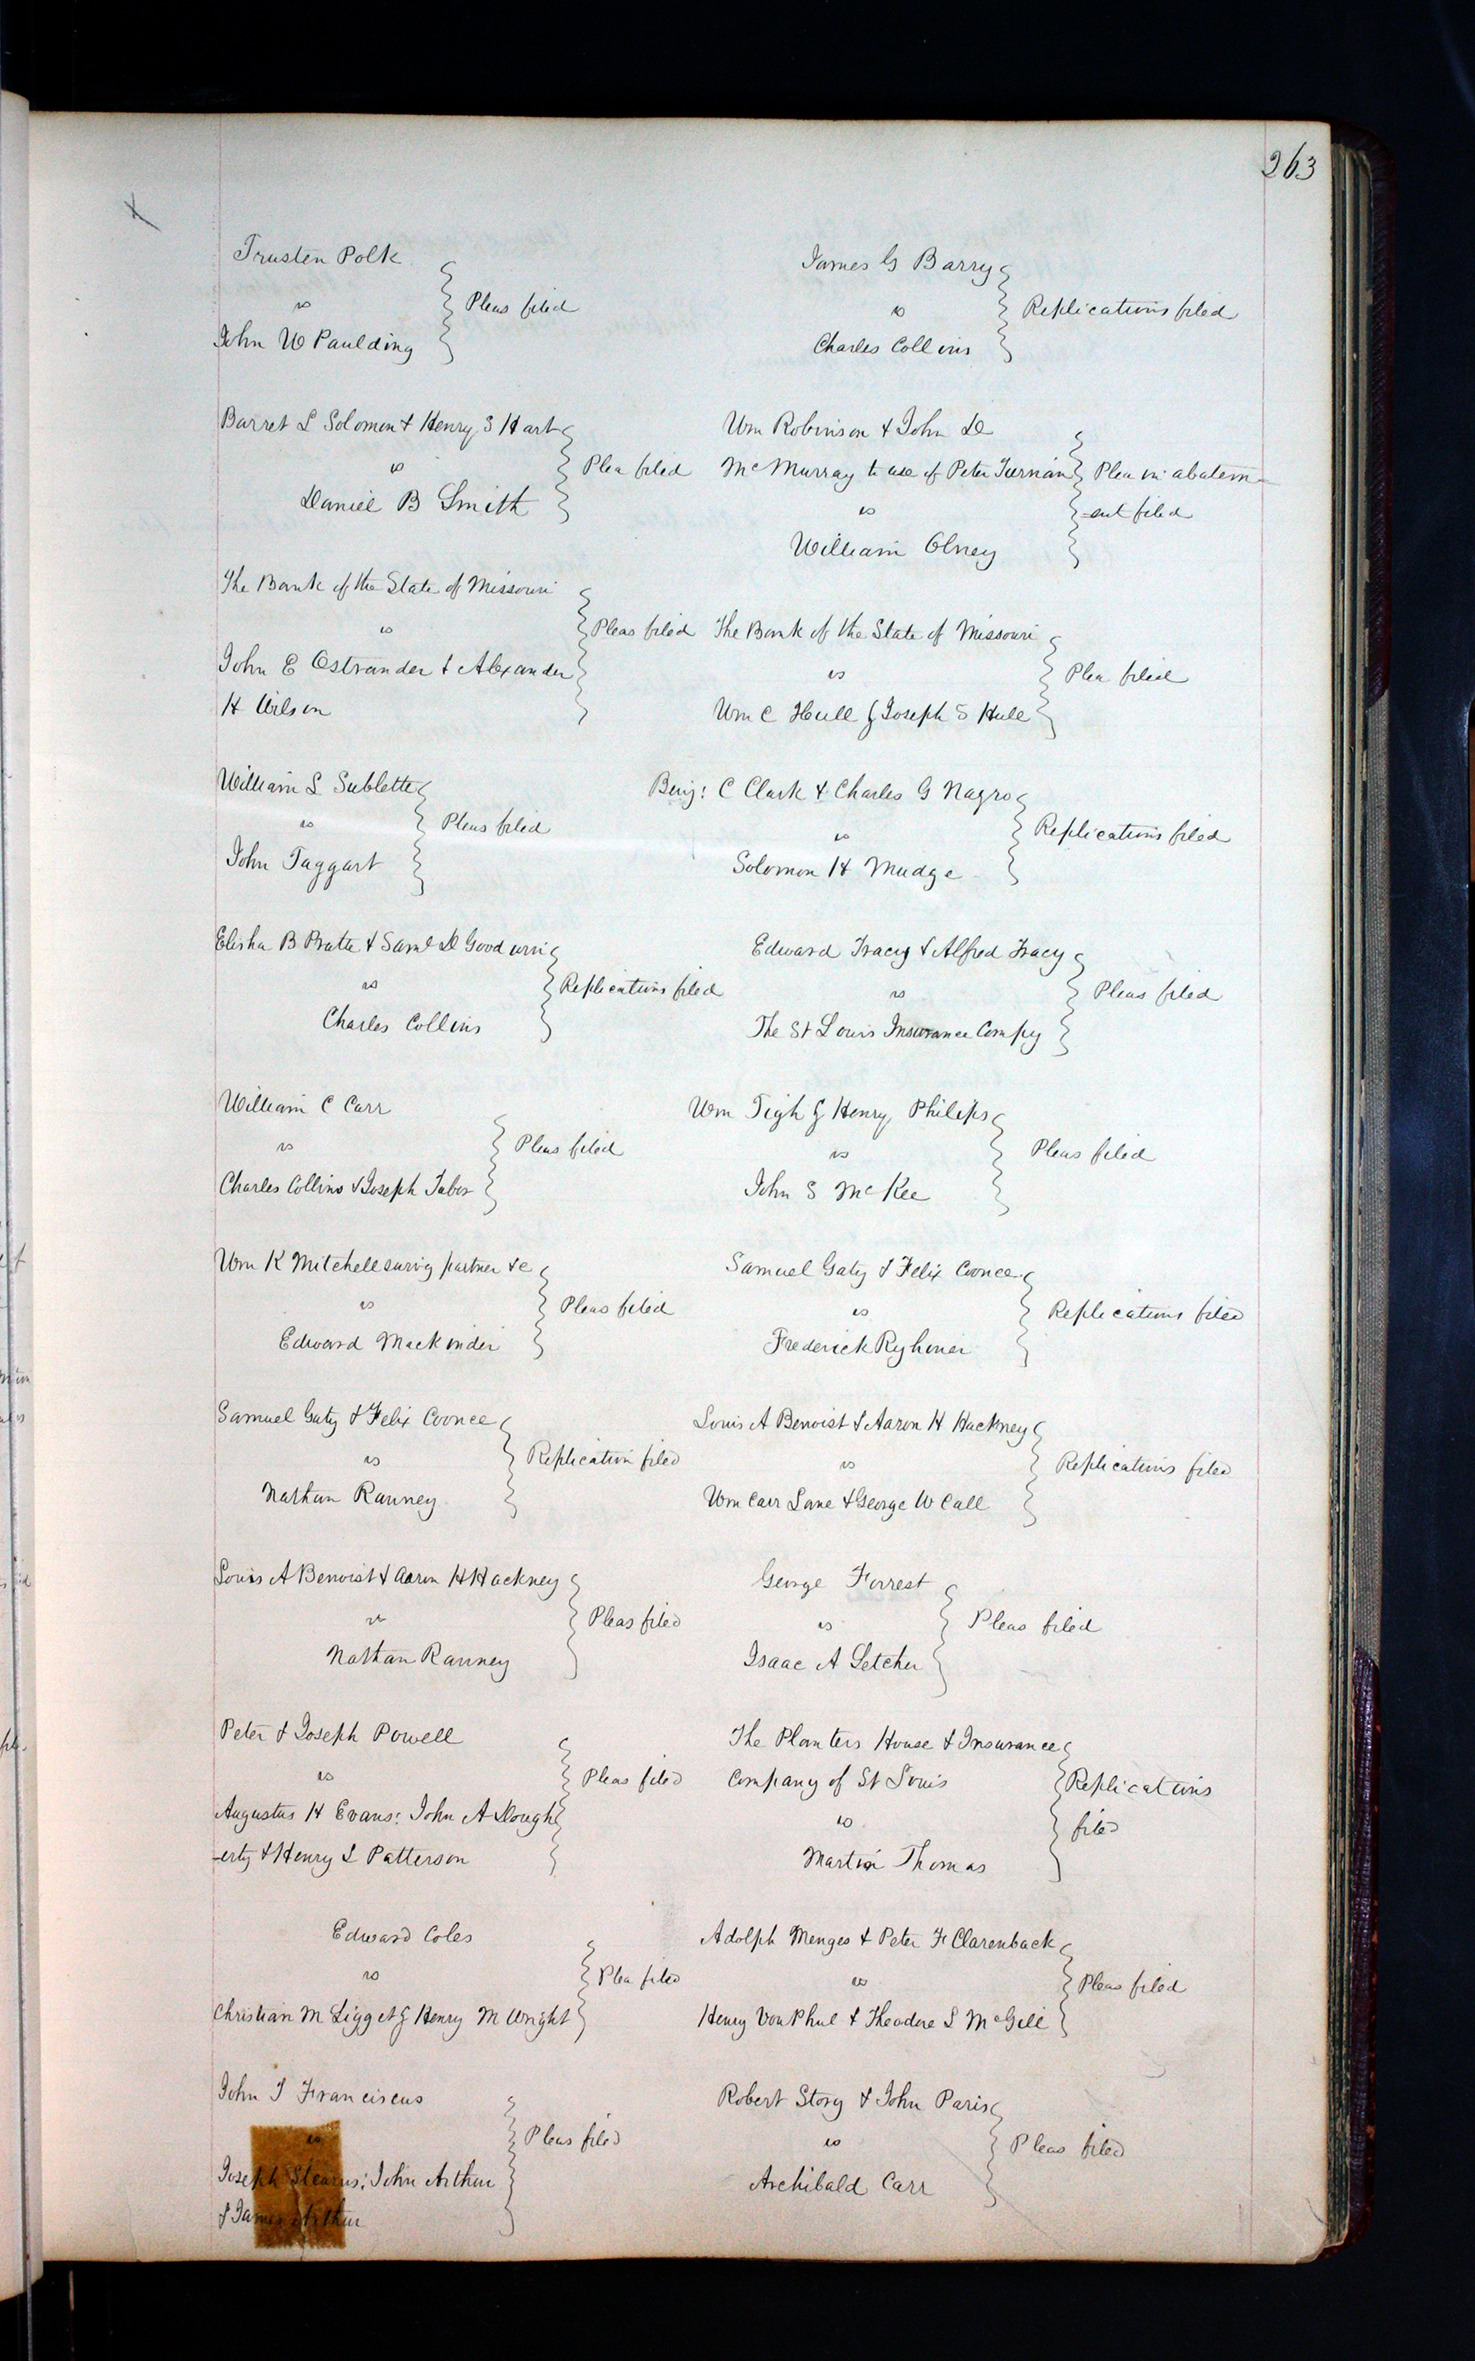 263
Trusten Polk
vs
Pleas filed
John W Paulding
Barret L Solomon & Henry S Hart
vs
Plea filed
Daniel B Smith
The Bank of the State of Missouri
vs
Pleas filed
John E Ostrander & Alexander
H Wilson
William L Sublette
vs
Pleas filed
John Taggart
Elisha B Pratte & Saml D Goodwin
vs
Replications filed
Charles Collins
William C Carr
vs
Pleas filed
Charles Collins & Joseph Tabor
Wm K Mitchell survig partner &c
vs
Pleas filed
Edward Mackinder
Samuel Gaty & Felix Coonce
vs
Replication filed
Nathan Ranney
Louis A Benoist & Aaron H Hackney
vs
Pleas filed
Nathan Ranney
Peter & Joseph Powell
vs
Pleas filed
Augustus H Evans: John A Dough
-erty & Henry L Patterson
Edward Coles
vs
Plea filed
Christian M Ligget & Henry M Wright
John J Franciscus
vs
Pleas filed
Joseph Stearns: John Arthur
& James Arthur
James G Barry
vs
Replications filed
Charles Collins
Wm Robinson & John D
McMurray to use of Peter Tiernan
Plea in abatem-
vs
-ent filed
William Olney
The Bank of the State of Missouri
vs
Plea filed
Wm C Hull & Joseph S Hull
Benj: C Clark & Charles G Nagro
vs
Replications filed
Solomon H Mudge
Edward Tracy & Alfred Tracy
vs
Pleas filed
The St Louis Insurance Compy
Wm Tigh & Henry Philips
vs
Pleas filed
John S McKee
Samuel Gaty & Felix Coonce
vs
Replications filed
Frederick Ryhiner
Louis A Benoist & Aaron H Hackney
vs
Replications filed
Wm Carr Lane & George W Call
George Forrest
vs
Pleas filed
Isaac A Letcher
The Planters House & Insurance
Company of St Louis
Replications
vs
filed
Martin Thomas
Adolph Menges & Peter F Clarenback
vs
Pleas filed
Henry Von Phul & Theodore L McGill
Robert Story & John Paris
vs
Pleas filed
Archibald Carr